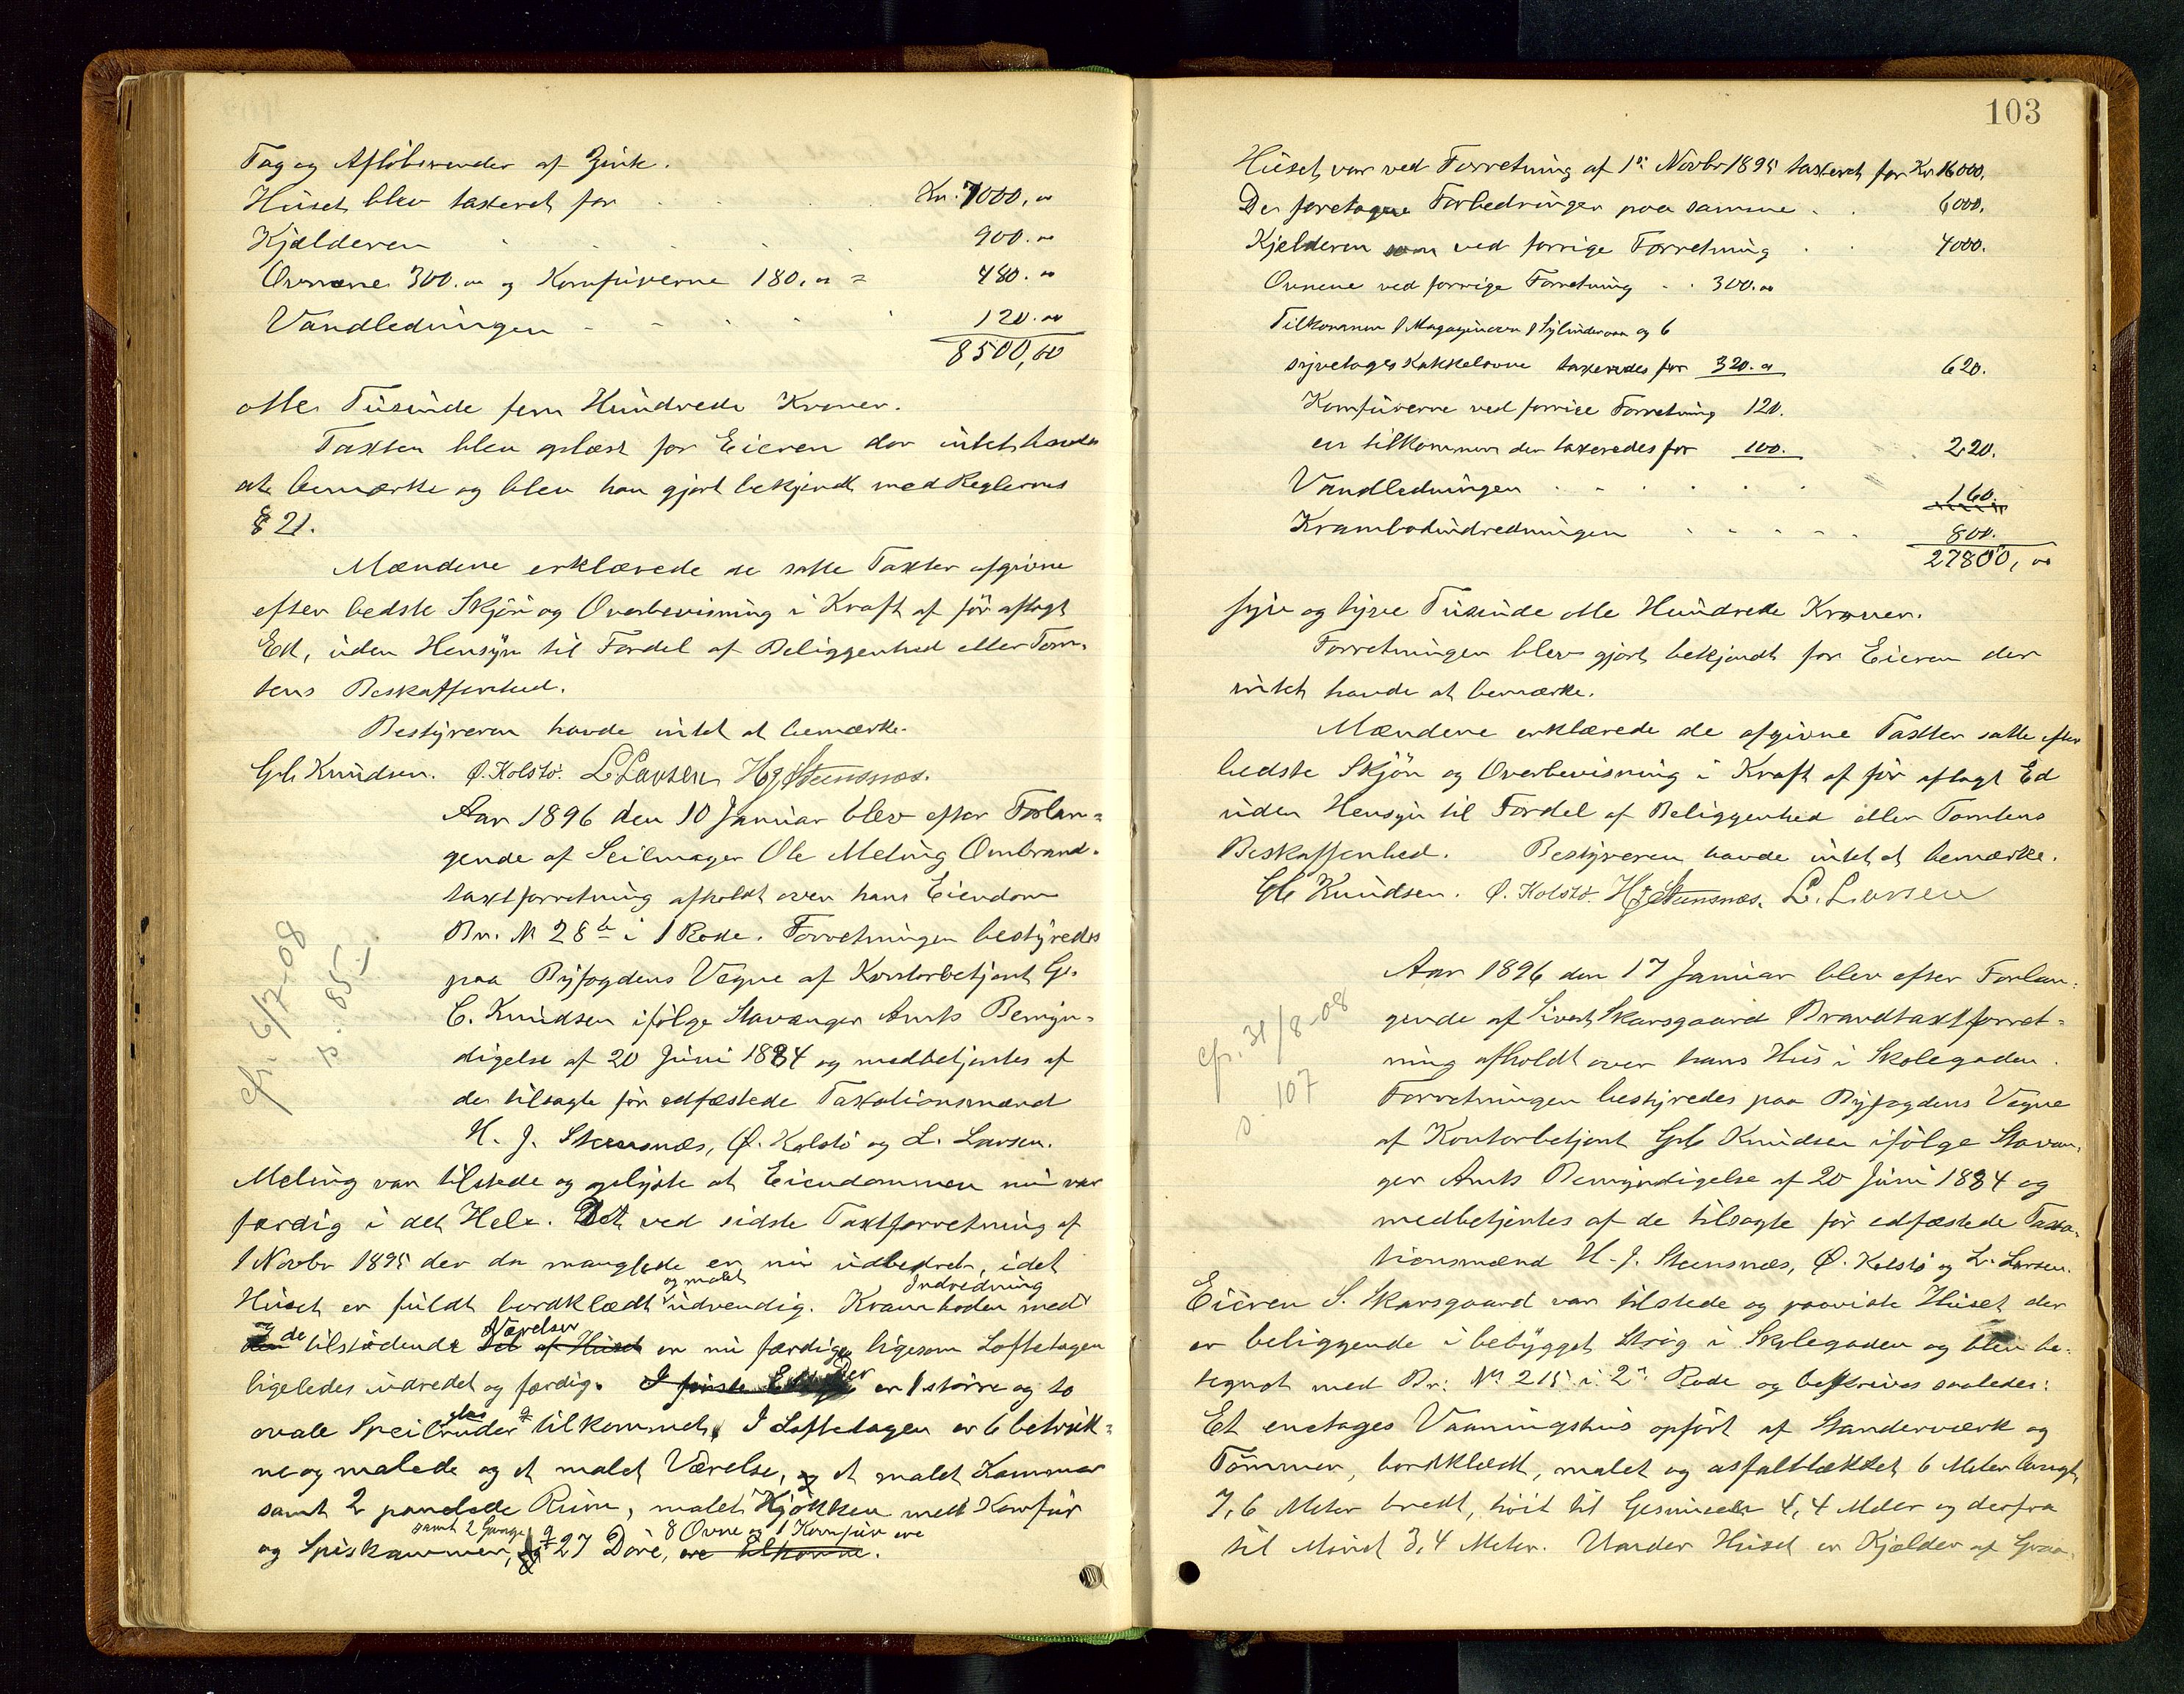 Tag og Afløbsrender af Zink.
Huset blev taxeret for Kr. 7000,00
Kjælderen 900.00
Ovnene 300.00 og Komfurerne 180.00 = 480.00
Vandledningen 120.00
8500,00
otte Tusinde fem Hundrede Kroner.
Taxten blev oplæst for Eieren der intet havde
at bemærke og blev han gjort bekjendt med Reglernes
§ 21.
Mændene erklærede de satte Taxter afgivne
efter bedste Skjøn og Overbevisning i Kraft af før aflagt
Ed, uden Hensyn til Fordel af Beliggenhed eller Tom-
tens Beskaffenhed.
Bestyreren havde intet at bemærke.
GC Knudsen. Ø. Kolstø. L Larsen H J Steensnæs.
Aar 1896 den 10 Januar blev efter Forlan=
gende af Seilmager Ole Meling Ombrand-
taxtforretning afholdt over hans Eiendom
Br. № 28 b i 1 Rode. Forretningen bestyredes
paa Byfogdens Vegne af Kontorbetjent G.
C. Knudsen ifølge Stavanger Amts Bemyn=
digelse af 20 Juni 1884 og medbetjentes af
de tilsagte før edfæstede Taxationsmænd
H. J. Steensnæs, Ø. Kolstø og L. Larsen.
cfr. 6/7-08
p. 85
Meling var tilstede og oplyste at Eiendommen nu var
færdig i det Hele. Det ved sidste Taxtforretning af
1 Novbr 1895 der da manglede er nu udbedret, idet
Huset er fuldt bordklædt og malet udvendig. Kramboden med Indredning
og de tilstødende Værelser er nu færdige ligesom Loftetagen
ligeledes indredet og færdig. Der er 1 større og to
ovale Speilglasruder tilkommet. I Loftetagen er 6 betruk=
ne og malede og et malet Værelse, et malet Kammer
samt 2 panelede Rum, malet Kjøkken med Komfur
og Spiskammer, samt 2 Gange og 27 Døre, 8 Ovne og 1 Komfur ere tilkomne.
103
Huset var ved Forretning af 1ste Novbr 1895 taxeret for Kr. 16000.
De foretagne Forbedringer paa samme 6000.
Kjælderen som ved forrige Forretning 4000.
Ovnene ved forrige Forretning 300.00
Tilkommer 1 Magazinovn 1 Sylinderovn og 6
tyvetages Kakkelovne taxeredes for 320.00 620.
Komfurerne ved forrige Forretning 120.
en tilkommen der taxeredes for 100. 220.
Vandledningen 160.
Krambodindredningen 800.
27800,00
syv og tyve Tusinde otte Hundrede Kroner.
Forretningen blev gjort bekjendt for Eieren der
intet havde at bemærke.
Mændene erklærede de afgivne Taxter satte efter
bedste Skjøn og Overbevisning i Kraft af før aflagt Ed
uden Hensyn til Fordel af Beliggenhed eller Tomtens
Beskaffenhed. Bestyreren havde intet at bemærke.
GC Knudsen. Ø. Kolstø. H J Steensnæs. L. Larsen
Aar 1896 den 17 Januar blev efter Forlan=
gende af Sivert Skarsgaard Brandtaxtforret=
ning afholdt over hans Hus i Skolegaden.
Forretningen bestyredes paa Byfogdens Vegne
af Kontorbetjent GC Knudsen ifølge Stavan-
ger Amts Bemyndigelse af 20 Juni 1884 og
medbetjentes af de tilsagte før edfæstede Taxa-
tionsmænd H. J. Steensnæs, Ø. Kolstø og L. Larsen.
cfr. 31/8-08
p. 107
Eieren S. Skarsgaard var tilstede og paaviste Huset der
er beliggende i bebygget Strøg i Skolegaden og blev be-
tegnet med Br: № 215 i 2den Rode og beskrives saaledes:
Et enetages Vaaningshus opført af Standerværk og
Tømmer, bordklædt, malet og asfalttækket 6 Meter langt,
7,6 Meter bredt, høit til Gesimsen 4,4 Meter og derfra
til Mønet 3,4 Meter. Under Huset er Kjælder af Graa-